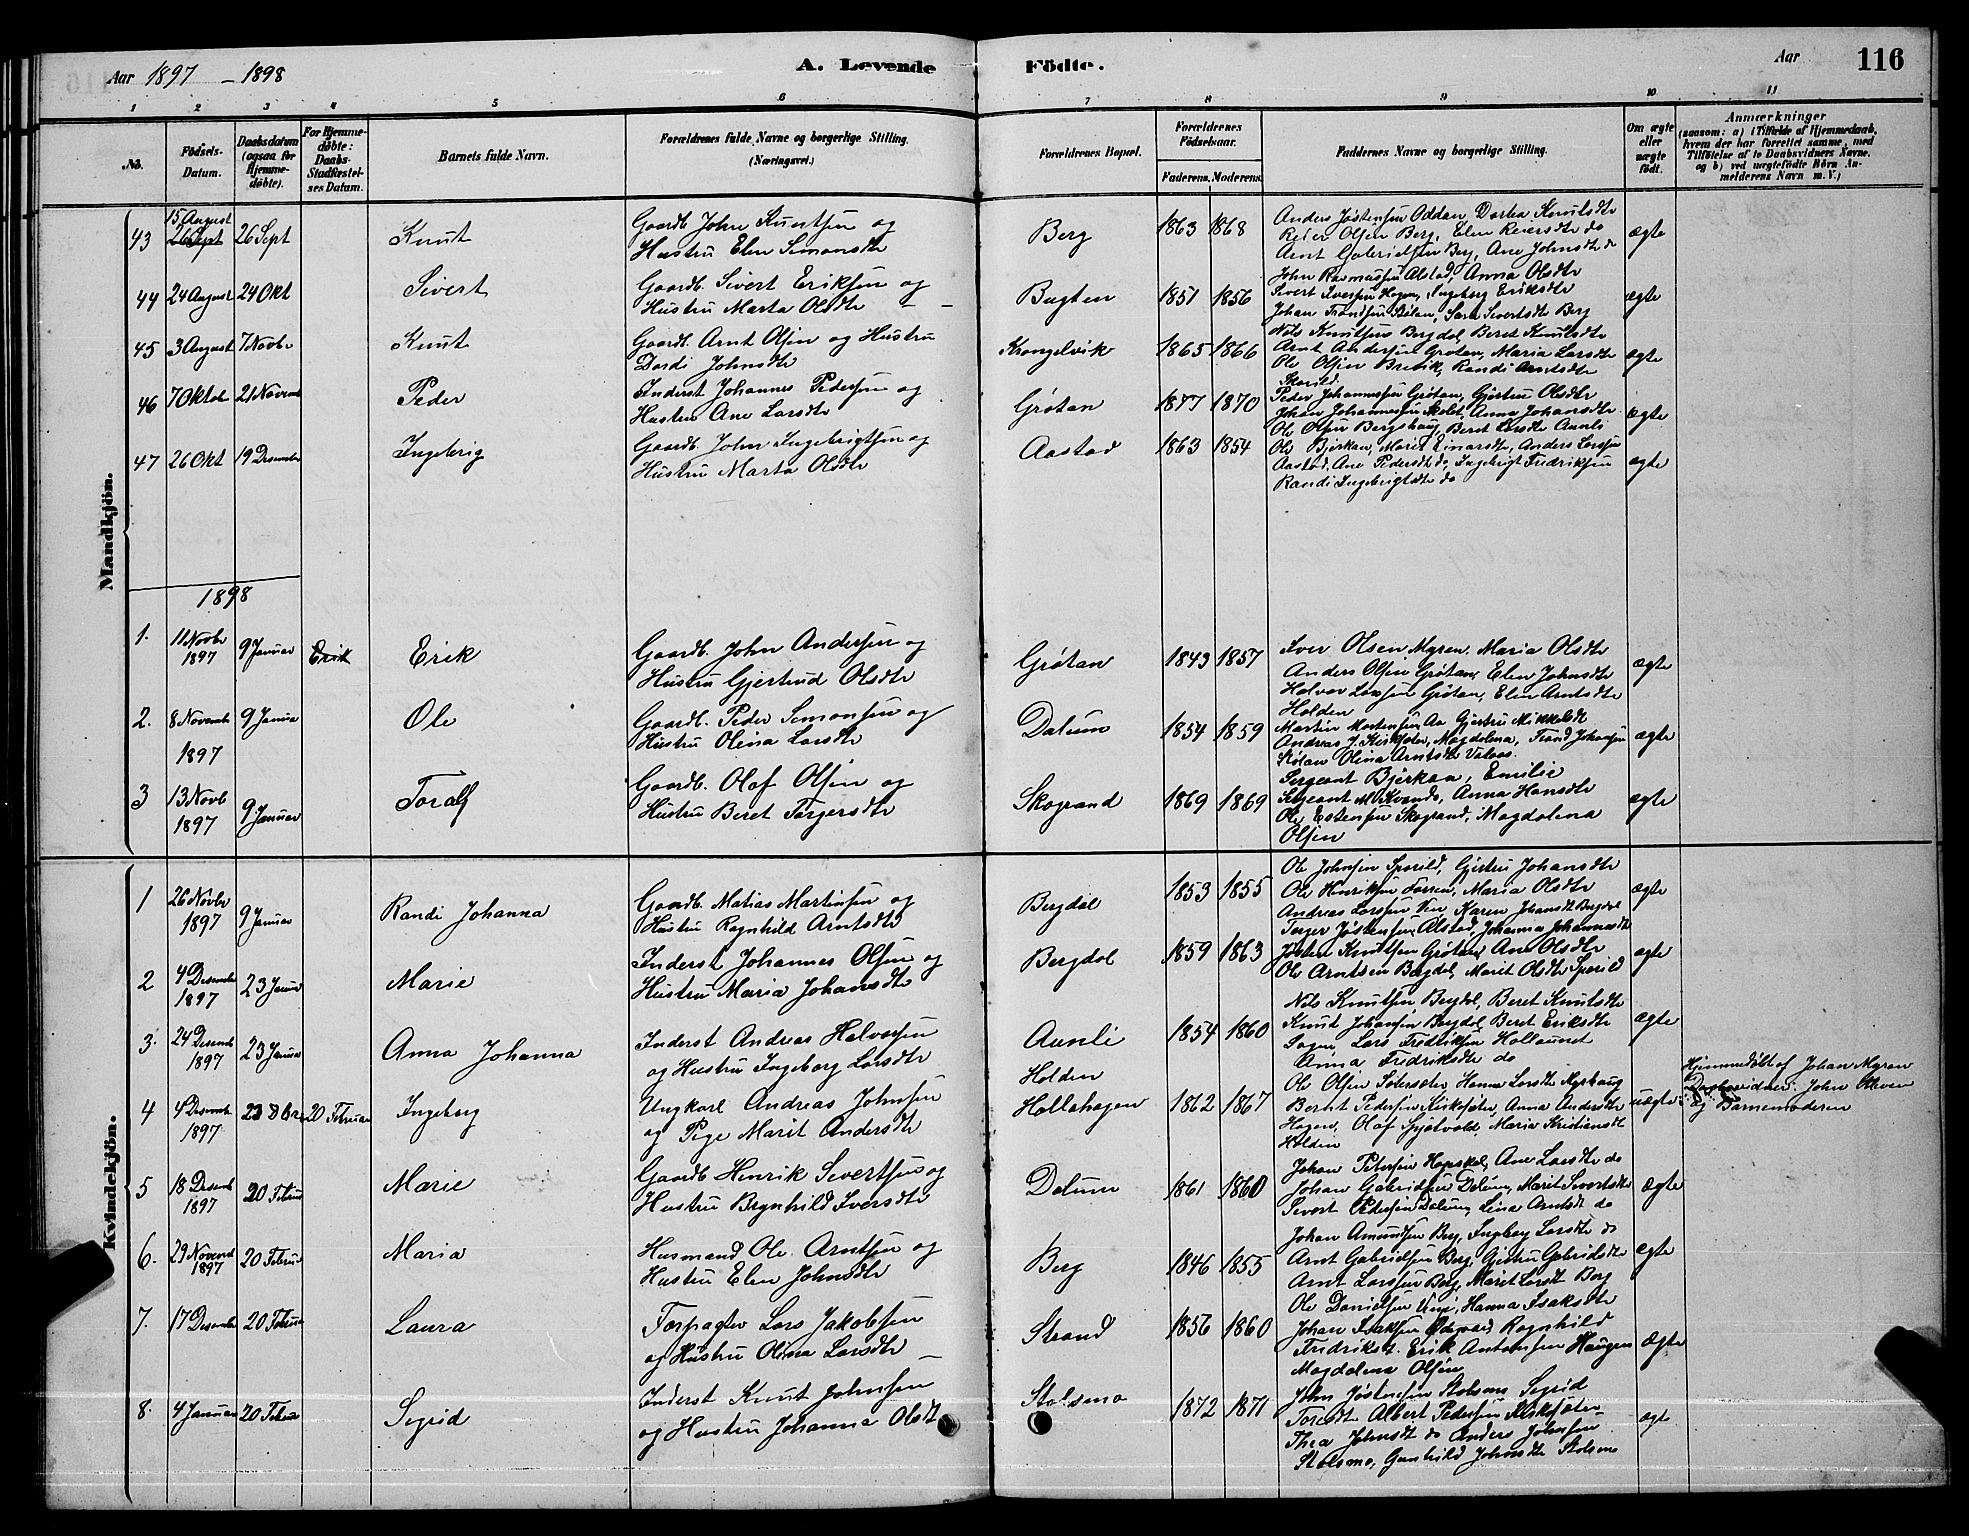 Aar 1897 - 1898
A. Levende Födte.
Aar 116
1 2 3 4 5 6 7 8 9 10 11
No.
Födsels-Datum.
Daabsdatum (ogsaa for Hjemmedöbte).
For Hjemmedöbte: Daabs-Stadfæstelses Datum.
Barnets fulde Navn.
Forældrenes fulde Navne og borgerlige Stilling. (Næringsvei.)
Forældrenes Bopæl.
Forældrenes Födselsaar.
Faderens. Moderens.
Faddernes Navne og borgerlige Stilling.
Om ægte eller uægte födt.
Anmærkninger
(saasom: a) i Tilfælde af Hjemmedaab, hvem der har forrettet samme, med Tilföielse af to Daabsvidners Navne, og b) ved uægtefödte Börn Anmelderens Navn m. V.)
Mandkjön.
43 15 August 26 Sept 26 Sept Knut
Gaardb. John Knutsen og
Hustru Elen Simonsdtr
Berg 1863 1868
Anders Jøstensen Oddan, Dortea Knutsdtr
Reier Olsen Berg, Elen Reiersdtr do
Arnt Gabrielsen Berg, Ane Johnsdtr do
ægte
44 24 August 24 Okt Sivert
Gaardb. Sivert Eriksen og
Hustru Marta Olsdtr
Bugten 1851 1856
John Rasmussen Alstad, Anna Olsdtr
Sivert Iversen Hogen, Ingeborg Eriksdtr
Johan Trondsen Stølan, Sara Sivertsdtr Berg
ægte
45 3 August 7 Novbr Knut
Gaardb. Arnt Olsen og Hustru
Dordi Johnsdtr
Krongelvik 1865 1866
Nils Knutsen Bergdal, Beret Knutsdtr
Arnt Andersen Grøtan, Maria Larsdtr
Ole Olsen Brevik, Randi Arntsdtr
ægte
46 7 Oktob 21 Novemb Peder
Inderst Johannes Pedersen og
Hustru Ane Larsdtr
Grøtan 1877 1870
Peder Johannessen Grøtan, Gjertru Olsdtr
Johan Johannessen, Anna Johansdtr
Ole Olsen Bergshaug, Beret Larsdtr Aunli
ægte
47 26 Okt 19 Desember Ingebrig
Gaardb. John Ingebrigtsen og
Hustru Marta Olsdtr
Aastad 1863 1854
Ole Bjerkan, Marit Einarsdtr, Anders Larsen
Aastad, Ane Pedersdtr do, Ingebrigt Fredriksen
Randi Ingebrigtsdtr do
ægte
1898
1. 11 Novbr 1897 9 Januar Erik Erik
Gaardb. John Andersen og
Hustru Gjertrud Olsdtr
Grøtan 1843 1857
Iver Olsen Myren, Maria Olsdtr
Anders Olsen Grøtan, Elen Johnsdtr
Halvor Larsen Grøtan, Elen Arntsdtr
Holden
ægte
2. 8 Novemb 1897 9 Janua Ole
Gaardb. Peder Simonsen og
Hustru Olina Larsdtr
Dalum 1854 1859
Martin Mortensen Aa, Gjertru Mikkelsdt
Andreas J. Kirksæter, Magdalena, Trond Johansen
Stølan Olina Arntsdtr Valaas.
ægte
3 13 Novb 1897 9 Januar Toralf
Gaardb. Olaf Olsen og
Hustru Beret Torgersdtr
Skogrand 1869 1869
Sergeant Bjerkan, Emilie
Sergeant M. Kvande, Anna Hansdtr
Ole Estensen Skogrand, Magdalena
Olsen
ægte
Kvindekjön.
1 26 Novbr 1897 9 Januar Randi Johanna
Gaardb. Matias Martinsen og
Hustru Ragnhild Arntsdtr
Bergdal 1853 1855
Ole Johnsen Sporild, Gjertru Johansdtr
Ole Henriksen, Maria Olsdtr
Andreas Larssen Ven, Karen Johansdt Bergdal
ægte
2 4 Desemb 1897 23 Janua Marie
Inderst Johannes Olsen og
Hustru Maria Johansdtr
Bergdal 1859 1863
Torger Jøstensen Alstad, Johanna Johannesdt
Jøsten Knutsen Grøtan, Ane Olsdtr
Ole Arntsen Bergdal, Marit Olsdtr Sporild
ægte
3. 24 Desemb 1897 23 Januar Anna Johanna
Inderst Andreas Halvorsen
og Hustru Ingeborg Larsdtr
Aunli 1854 1860
Nils Knutsen Bergdal, Beret Knutsdtr
Knut Johansen Bergdal, Beret Eriksdtr
Lars Fredriksen
Anna Fredriksdtr do
ægte
4 4 Desemb 1897 23 Dbr 20 Februar Ingeborg
Ungkarl Andreas Johnsen
og Pige Marit Andersdtr
Holden
Hollahagen 1862 1867
Ole Olsen, Hanna Larsdtr
Bernt Pedersen Kirksæter, Anna Andersdtr
Hagen, Olaf Spjøtvold, Maria Kristiansdt
Holden
uægte
Hjemmedøbt af Johan Myran
Daabsvidner: John
og Barnemoderen
5 18 Desemb 1897 20 Februa Marie
Gaardb Henrik Sivertsen og
Hustru Brynhild Iversdtr
Dalum 1861 1860
Johan Petersen, Ane Larsdtr do
Johan Gabrielsen Dalum, Marit Sivertsdtr
Sivert Pedersen Dalum, Lina Arntsdt do
ægte
6. 29 Novemb 1897 20 Februa Maria
Husmand Ole Arntsen og
Hustru Elen Johnsdtr
Berg 1846 1855
Johan Amundsen Berg, Ingeborg Larsdtr do
Arnt Gabrielsen Berg, Gjertru Gabrielsdtr
Arnt Larssen Berg, Marit Larsdt Berg
ægte
7. 17 Desember 20 Februa Laura
Forpagter Lars Jakobsen
og Hustru Olina Larsdtr
Strand 1856 1860
Ole Danielsen, Hanna Isaksdtr
Johan Isaksen Ødegaard, Ragnhild
Fredriksdt. Erik Antonsen Haugen
Magdalena Olsen
Ægte
8. 4 Januar 20 Februa Sigrid
Inderst Knut Johnsen
og Hustru Johanna Olsdt
Stolsmo 1872 1871
John Jøstensen Stolsmo Sigrid
Toresdtr Albert Pedersen Kirksæter
Thea Johnsdt do Anders Johnsen
Stolsmo, Gunhild Johnsdtr Stolsmo
ægte